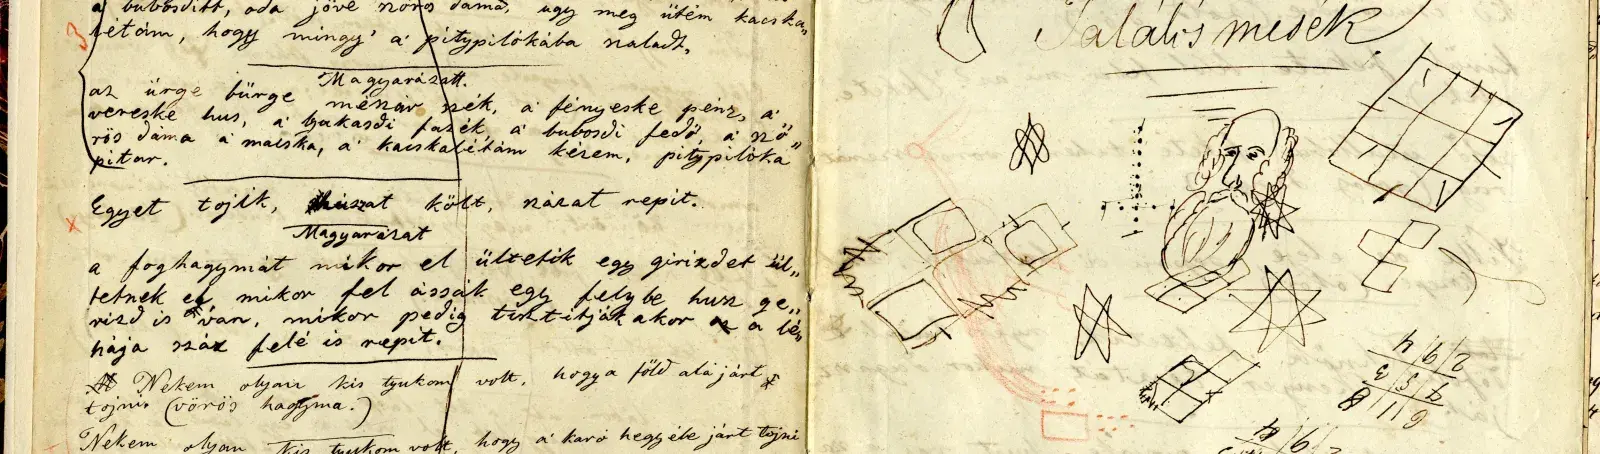 a bubosditt, oda jöve szörös dáma, ugy meg ütém kacska„
létám, hogy mingy' a' pitypilókába szaladt.
Magyarázatt.
az ürge bürge mészár szék, a' fényeske pénz, a'
vereske hus, a' bakasdi fazék, a' bubosdi fedő, a szö„
rös dáma a' macska, a' kacskalétám kézem, pitypilóka
pitar.
Egyet tojik, huszat költ, százat repit.
Magyarázat
a foghagymát mikor el ültetik egy girizdet ül„
tetnek el, mikor fel ássák egy felybe husz ge„
rizd is van, mikor pedig tisztitják akor a lé„
hája száz felé is repit.
Nekem olyan kis tyukom volt, hogy a föld alá járt
tojni (vörös hagyma.)
Nekem olyan kis tyukom volt, hogy a' karó hegyébe járt tojni
Találós mesék